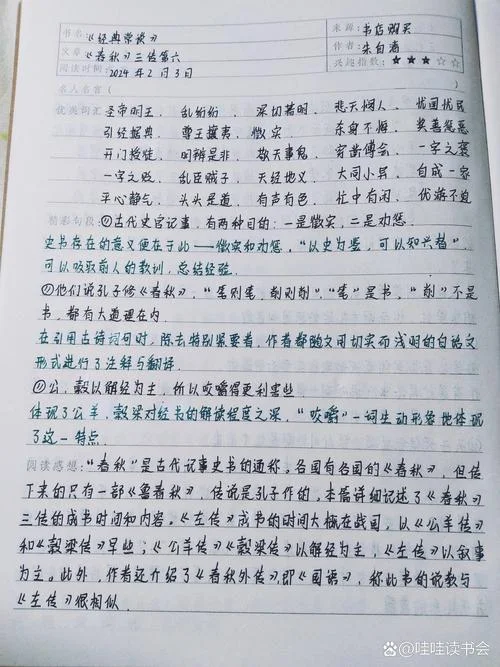 书名:《经典常谈》 来源:书店购买
文章:《春秋》三传第六 作者:朱自清
阅读时间:2024年2月3日 兴趣指数:★★★☆☆
名人名言( )
优美词汇:圣帝明王、乱纷纷、深切著明、悲天悯人、忧国忧民
引经据典、尊王攘夷、徵实、奖善惩恶
开门授徒、明辨是非、敬天事鬼、穿凿傅会、一字之褒
一字之贬、乱臣贼子、天经地义、大同小异、自成一家
平心静气、头头是道、有声有色、忙中有闲、优游不迫
精彩句段:①古代史官记事,有两种目的:一是徵实,二是劝惩.
史书存在的意义便在于此——徵实和劝惩,“以史为鉴,可以知兴替”,
可以吸取前人的教训,总结经验.
②他们说孔子修《春秋》,“笔则笔,削则削”“笔”是书,“削”不是
书,都有大道理在内
在引用古诗词句时,除去特别紧要者,作者都随文用切实而浅明的白话文
形式进行了注解与翻译.
③公、榖以解经为主,所以咬嚼得更利害些
体现了公羊、榖梁对经书的解读程度之深,“咬嚼”一词生动形象地体现
了这一特点.
阅读感想:“春秋”是古代记事史书的通称。各国有各国的《春秋》,但传
下来的只有一部《鲁春秋》,传说是孔子作的,本篇详细记述了《春秋》
三传的成书时间和内容。《左传》成书的时间大概在战国,以《公羊传》
和《榖梁传》早些;《公羊传》《榖梁传》以解经为主,《左传》以叙事
为主。此外,作者还介绍了《春秋外传》,即《国语》,称此书的说教与
《左传》很相似.
哇哇读书会